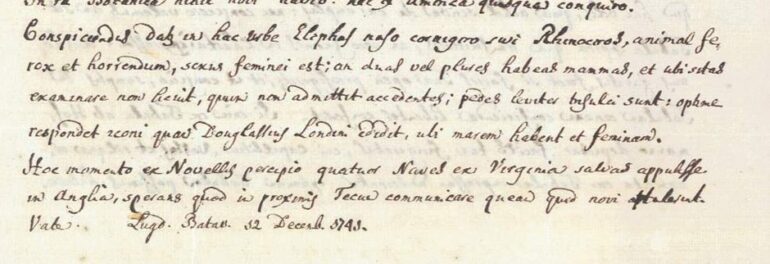 In re botanica nihil novi habeo: nec q̃ Amorica quisquā conquiro.
Conspiciendus datur in hac urbe Elephas naso cornigero sivi Rhinoceros, animal fe-
rox et horrendum, sexus feminei est; an duas vel plures habeat mammas, et ubi sitas
examinare non licuit, quum non admittit accedentes; pedes leviter bisulci sunt: optime
respondet iconi quam Douglassius Londini edidit, ubi marem habent et feminam.
Hoc momento ex Novellis percipio quatuor Naves ex Virginia salvas appulisse
in Anglia, sperans quod in proximis Tecum communicare queam quid novi attulerint.
Vale. Lugd. Batav. 12 Decemb. 1741.